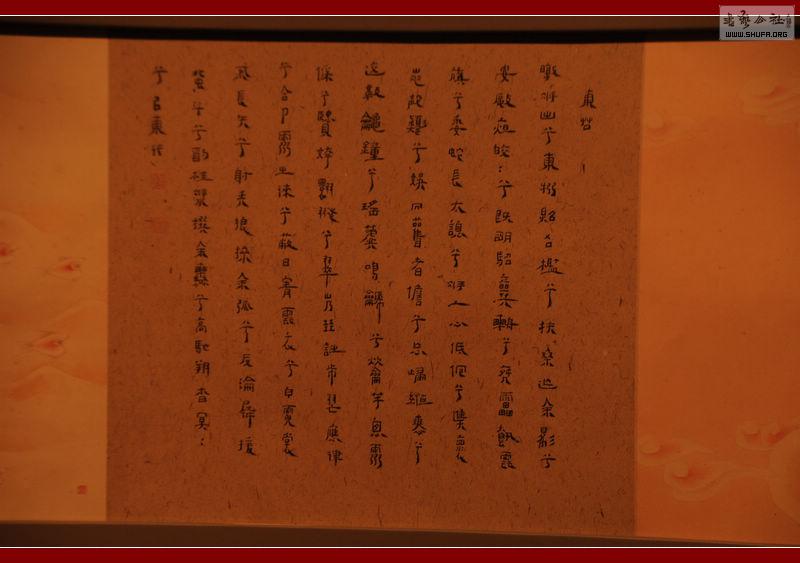 東君
暾將出兮東方照吾檻兮扶桑撫余馬兮
安驅夜皎:兮既明駕龍輈兮乘雷載雲
旗兮委蛇長太息兮將上心低徊兮顧懷
羌聲色兮娛人觀者憺兮忘歸緪瑟兮
交鼓簫鐘兮瑤簴鳴篪兮吹竽思靈
保兮賢姱翾飛兮翠曾展詩兮會舞應律
兮合節靈之來兮蔽日青雲衣兮白霓裳
舉長矢兮射天狼操余弧兮反淪降援
北斗兮酌桂漿撰余轡兮高駝翔杳冥:
兮以東行
WWW.SHUFA.ORG